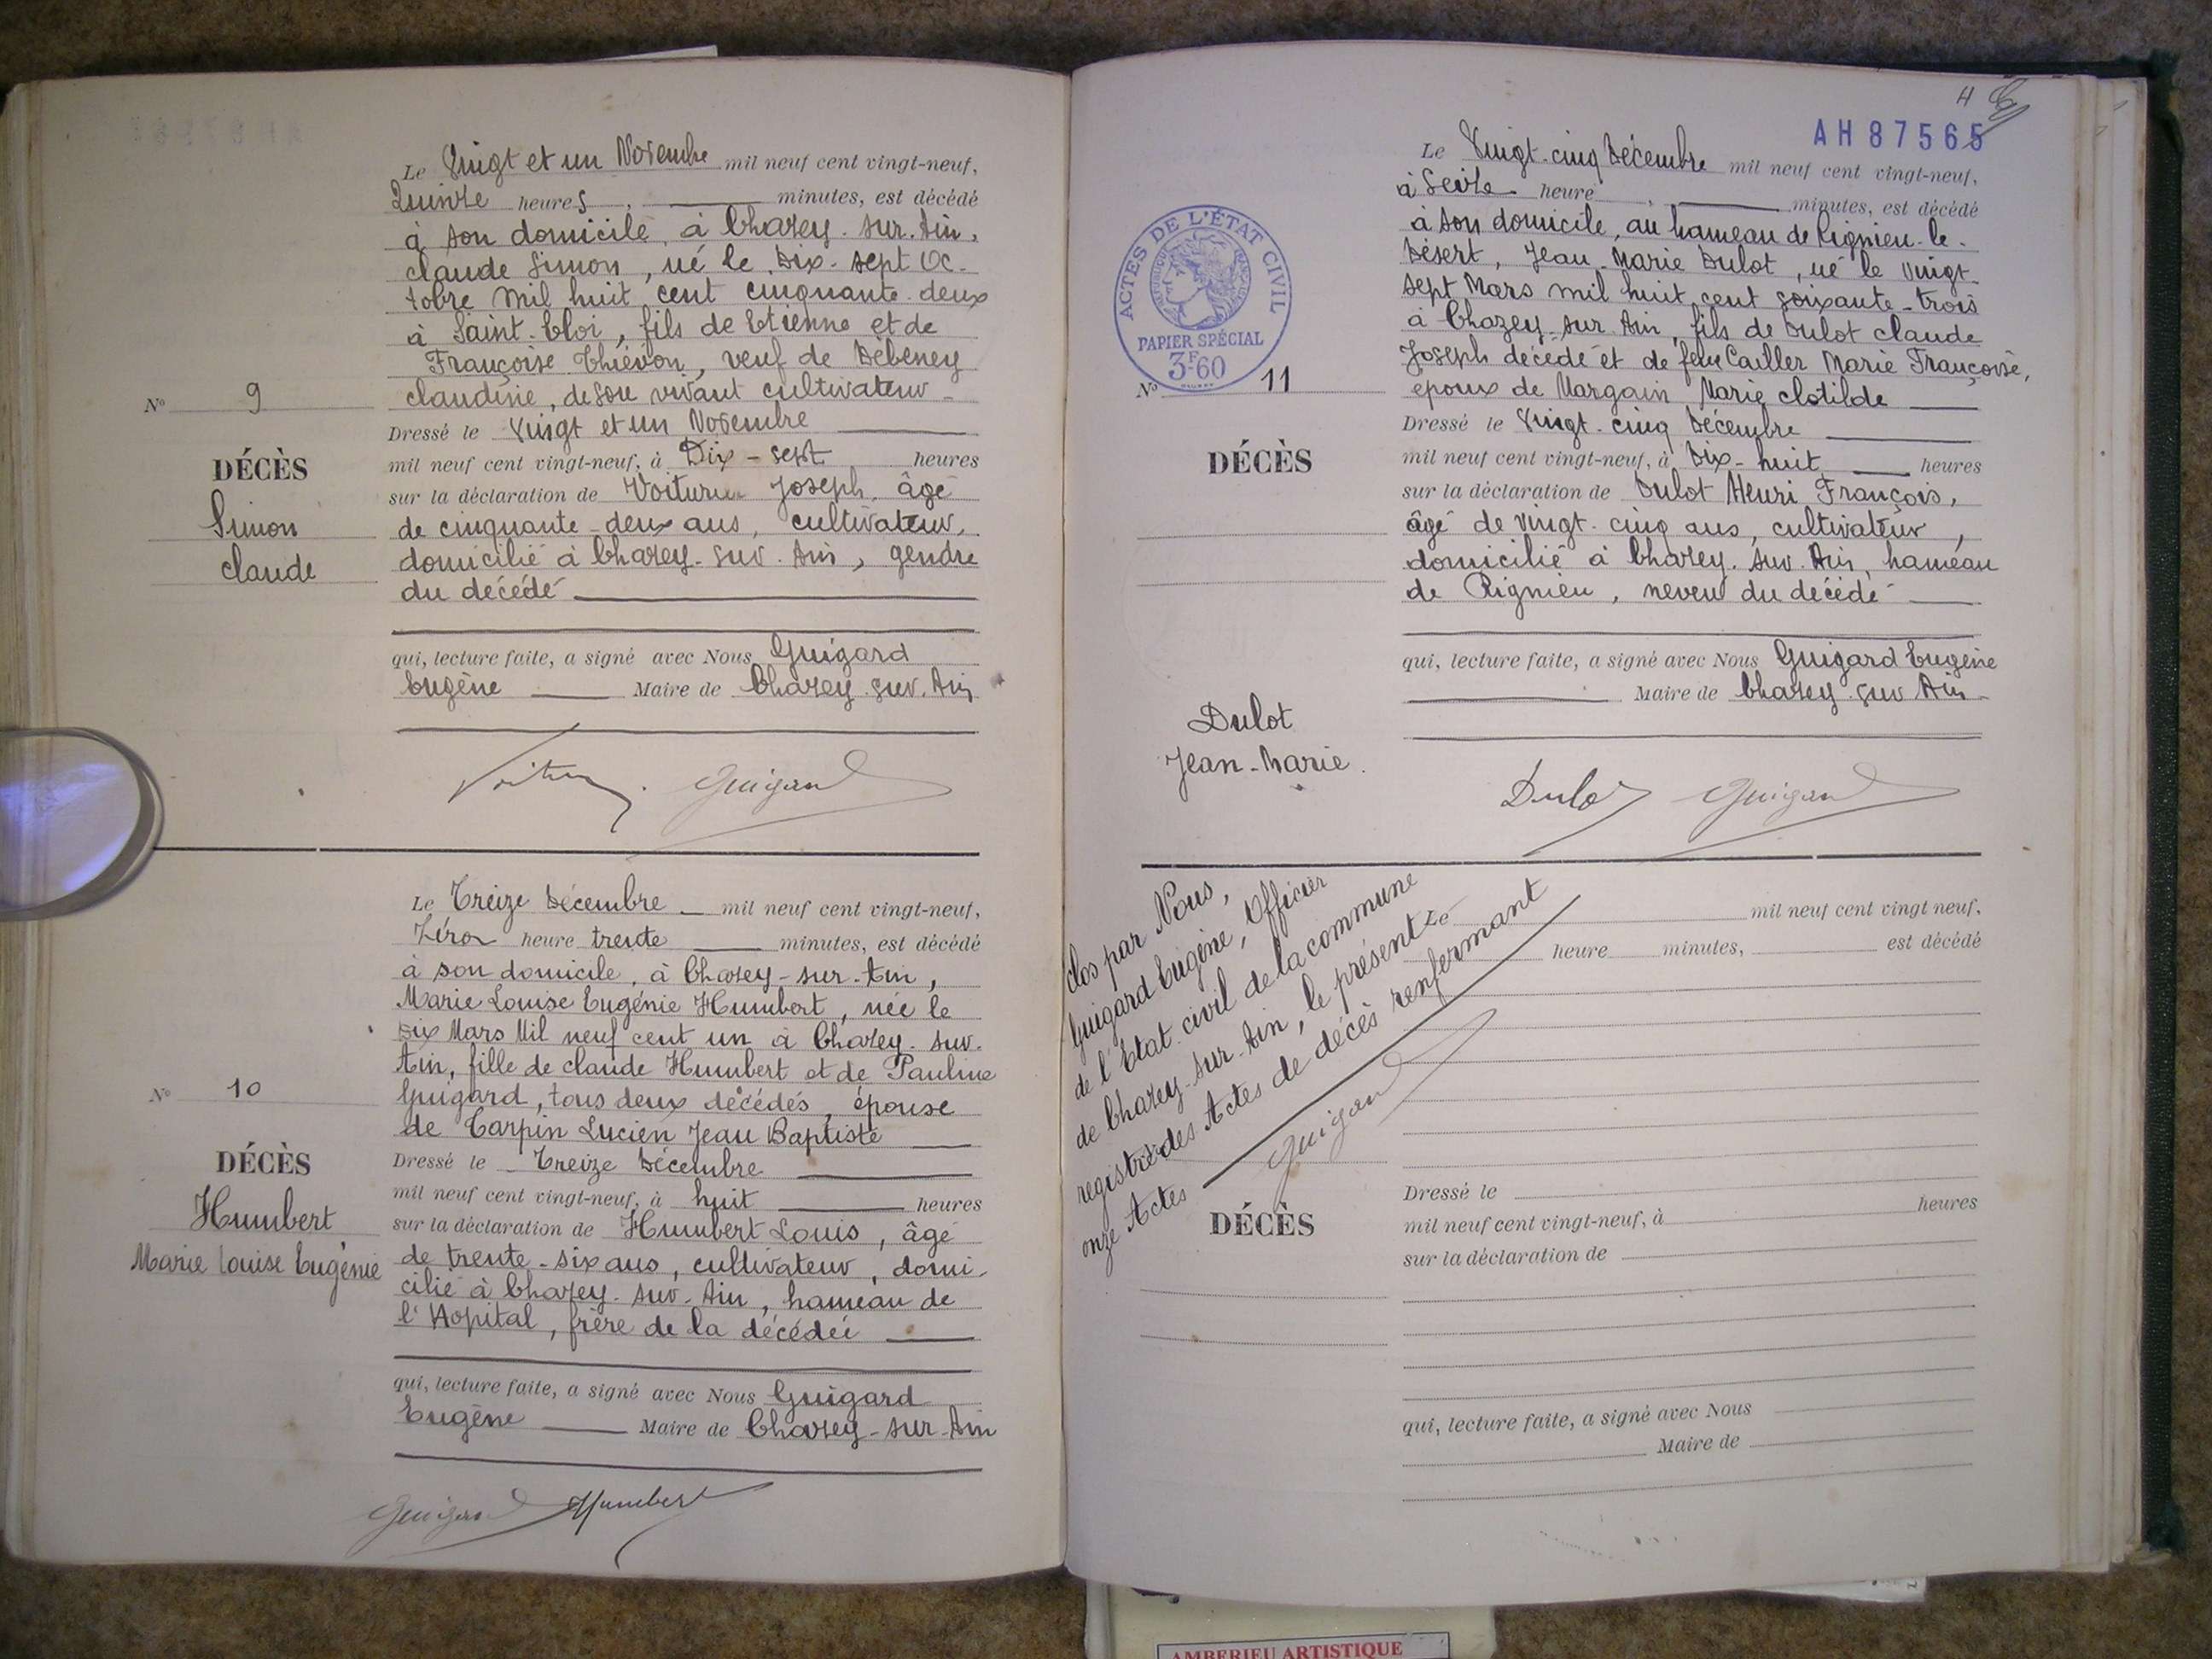 Le Vingt et un Novembre mil neuf cent vingt-neuf,
Quinze heures, minutes, est décédé
à son domicile, à Chazey-sur-Ain,
Claude Simon, né le Dix-sept Oc-
tobre mil huit cent cinquante-deux
à Saint-Eloi, fils de Etienne et de
Françoise Thiévon, veuf de Débeney
Claudine, de son vivant cultivateur
Dressé le Vingt et un Novembre
mil neuf cent vingt-neuf, à Dix-sept heures
sur la déclaration de Voiturier Joseph, âgé
de cinquante-deux ans, cultivateur,
domicilié à Chazey-sur-Ain, gendre
du décédé
qui, lecture faite, a signé avec Nous Guigard
Eugène Maire de Chazey-sur-Ain
Guigard
N° 9
DÉCÈS
Simon
Claude
Le Treize Décembre mil neuf cent vingt-neuf,
Zéro heure trente minutes, est décédé
à son domicile, à Chazey-sur-Ain,
Marie Louise Eugénie Humbert, née le
Dix Mars Mil neuf cent un à Chazey-sur-
Ain, fille de Claude Humbert et de Pauline
Guigard, tous deux décédés, épouse
de Carpin Lucien Jean Baptiste
Dressé le Treize Décembre
mil neuf cent vingt-neuf, à huit heures
sur la déclaration de Humbert Louis, âgé
de trente-six ans, cultivateur, domi-
cilié à Chazey-sur-Ain, hameau de
l'Hopital, frère de la décédée
qui, lecture faite, a signé avec Nous Guigard
Eugène Maire de Chazey-sur-Ain
Guigard Humbert
N° 10
DÉCÈS
Humbert
Marie Louise Eugénie
4
AH 87565
Le Vingt-cinq Décembre mil neuf cent vingt-neuf,
à Seize heure, minutes, est décédé
à son domicile, au hameau de Rignieu-le-
Désert, Jean-Marie Dulot, né le vingt-
sept Mars mil huit cent soixante-trois
à Chazey-sur-Ain, fils de Dulot Claude
Joseph décédé et de feue Cailler Marie Françoise,
époux de Margain Marie Clotilde
Dressé le Vingt-cinq Décembre
mil neuf cent vingt-neuf, à Dix-huit heures
sur la déclaration de Dulot Henri François,
âgé de vingt-cinq ans, cultivateur,
domicilié à Chazey-sur-Ain, hameau
de Rignieu, neveu du décédé
qui, lecture faite, a signé avec Nous Guigard Eugène
Maire de Chazey-sur-Ain
Dulot Guigard
ACTES DE L'ÉTAT CIVIL
RÉPUBLIQUE FRANÇAISE
PAPIER SPÉCIAL
3F60
N° 11
DÉCÈS
Dulot
Jean-Marie
Clos par Nous,
Guigard Eugène, Officier
de l'Etat-civil de la commune
de Chazey-sur-Ain, le présent
registre des Actes de décès renfermant
onze Actes
Guigard
Le mil neuf cent vingt neuf,
heure minutes, est décédé
Dressé le
mil neuf cent vingt-neuf, à heures
sur la déclaration de
qui, lecture faite, a signé avec Nous
Maire de
DÉCÈS
AMBERIEU ARTISTIQUE